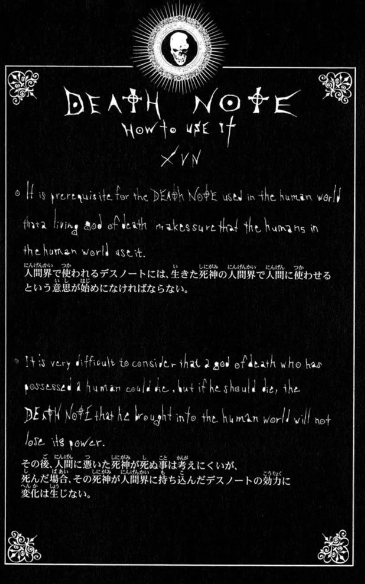 DEATH NOTE
HOW to USE It
XVII
○ It is prerequisite for the DEATH NOTE used in the human world
that a living god of death makes sure that the humans in
the human world use it.
人間界で使われるデスノートには、生きた死神の人間界で人間に使わせる
という意思が始めになければならない。
○ It is very difficult to consider that a god of death who has
possessed a human could die, but if he should die, the
DEATH NOTE that he brought into the human world will not
lose its power.
その後、人間に憑いた死神が死ぬ事は考えにくいが、
死んだ場合、その死神が人間界に持ち込んだデスノートの効力に
変化は生じない。